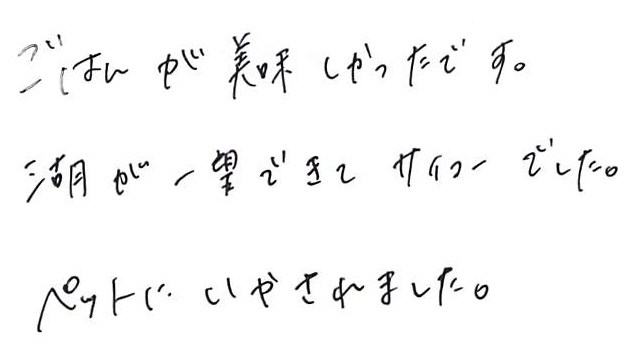 ごはんが美味しかったです。
湖が一望できてサイコーでした。
ペットにいやされました。